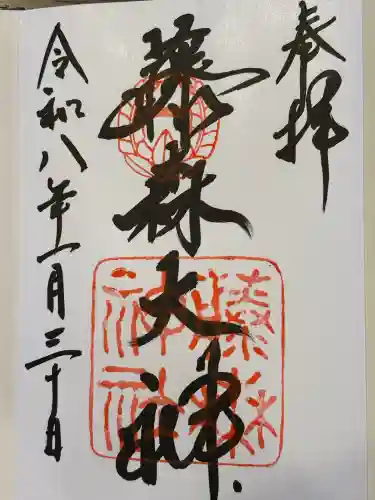 奉拝
藤森大神
藤森神社
令和八年一月三十日